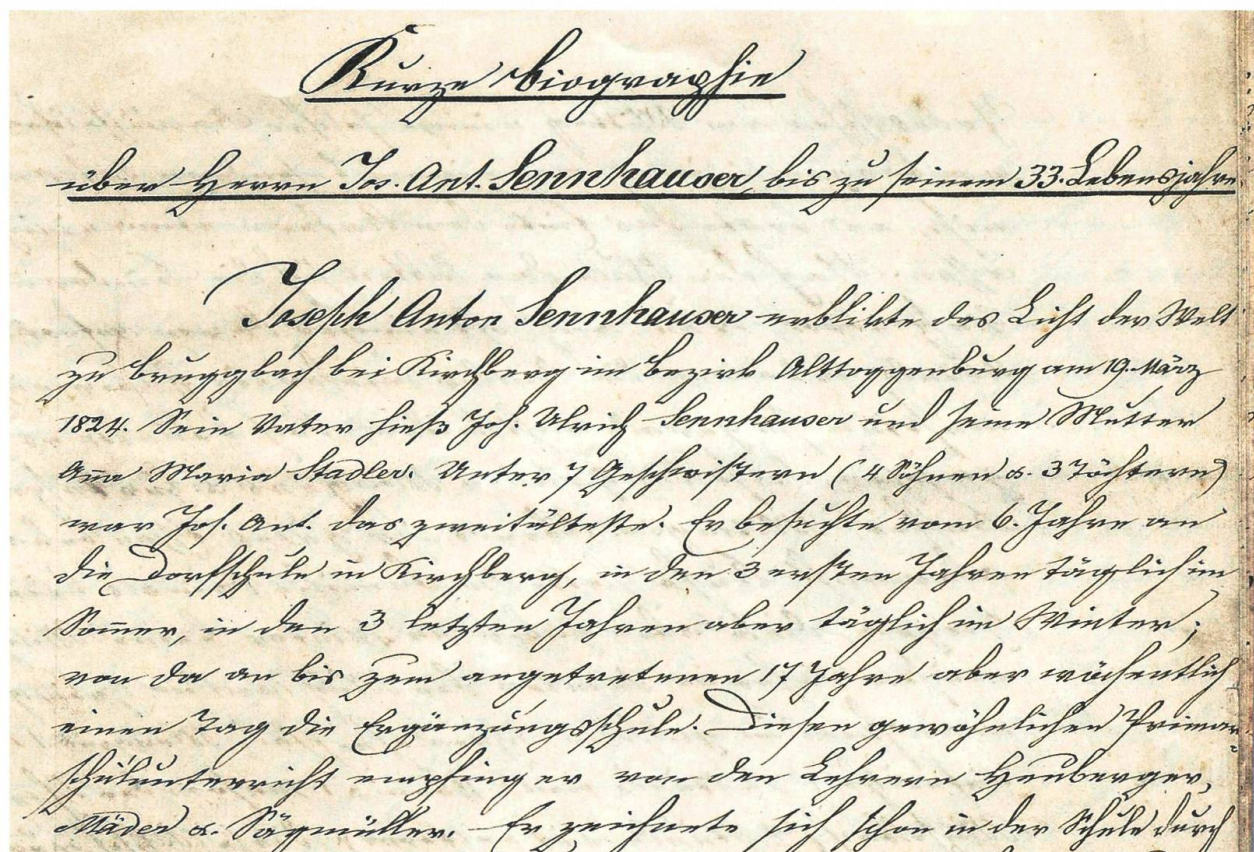 Kurze Biographie
über Herrn Jos. Ant. Sennhauser, bis zu seinem 33. Lebensjahre
Joseph Anton Sennhauser erblikte das Licht der Welt
zu Bruggbach bei Kirchberg im Bezirk Alttoggenburg am 19. März
1824. Sein Vater hieß Joh. Ulrich Sennhauser und seine Mutter
Aña Maria Stadler. Unter 7 Geschwistern (4 Söhnen u. 3 Töchtern)
war Jos. Ant. das zweitälteste. Er besuchte vom 6. Jahre an
die Dorfschule in Kirchberg, in den 3 ersten Jahren täglich im
Som̄er, in den 3 letzten Jahren aber täglich im Winter;
von da an bis zum angetretenen 17 Jahre aber wöchentlich
einen Tag die Ergänzungsschule. Diesen gewöhnlichen Primar-
schulunterricht empfing er von den Lehrern Heuberger,
Mäder u. Sägmüller. Er zeichnete sich schon in der Schule durch